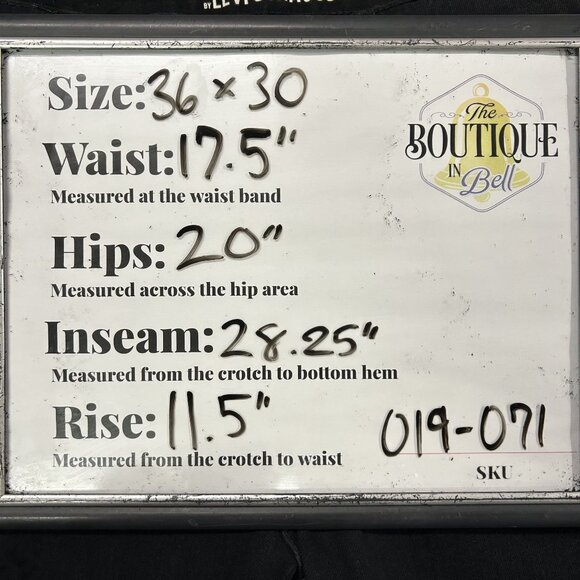 BY LEVI STRAUSS
Size: 36 x 30
The
BOUTIQUE
IN
Bell
Waist: 17.5"
Measured at the waist band
Hips: 20"
Measured across the hip area
Inseam: 28.25"
Measured from the crotch to bottom hem
Rise: 11.5"
Measured from the crotch to waist
019-071
SKU